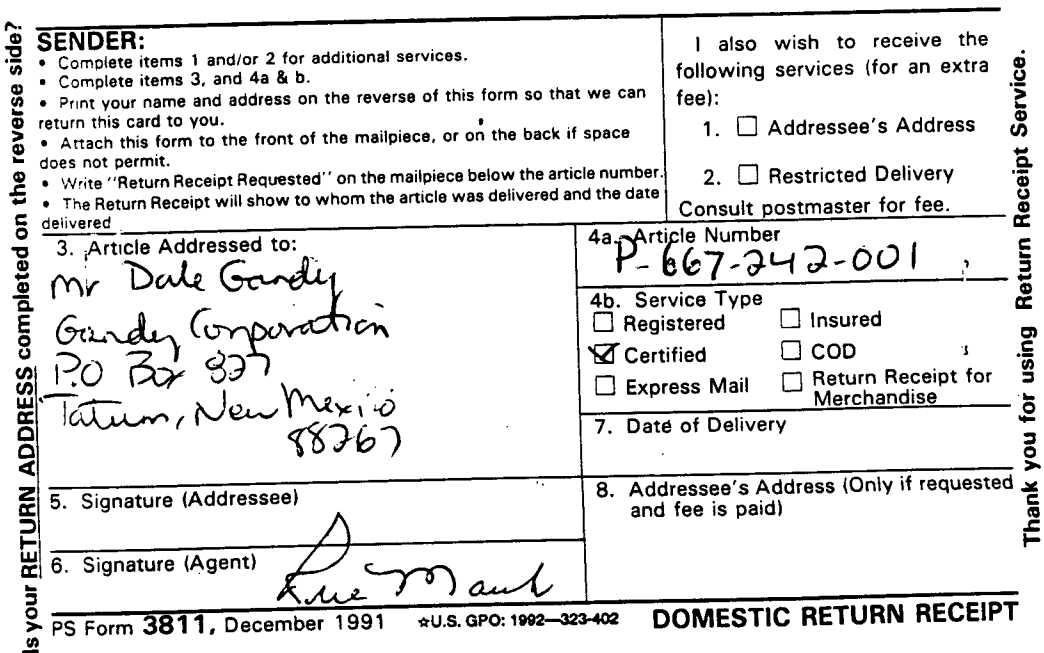 Is your RETURN ADDRESS completed on the reverse side?
SENDER:
• Complete items 1 and/or 2 for additional services.
• Complete items 3, and 4a & b.
• Print your name and address on the reverse of this form so that we can
return this card to you.
• Attach this form to the front of the mailpiece, or on the back if space
does not permit.
• Write "Return Receipt Requested" on the mailpiece below the article number.
• The Return Receipt will show to whom the article was delivered and the date
delivered
I also wish to receive the
following services (for an extra
fee):
1. ☐ Addressee's Address
2. ☐ Restricted Delivery
Consult postmaster for fee.
3. Article Addressed to:
Mr Dale Gandy
Gandy Corporation
P.O Box 827
Tatum, New Mexico
88267
4a. Article Number
P-667-242-001
4b. Service Type
☐ Registered ☐ Insured
☑ Certified ☐ COD
☐ Express Mail ☐ Return Receipt for
Merchandise
7. Date of Delivery
5. Signature (Addressee)
8. Addressee's Address (Only if requested
and fee is paid)
6. Signature (Agent)
PS Form 3811, December 1991 ☆U.S. GPO: 1992—323-402 DOMESTIC RETURN RECEIPT
Thank you for using Return Receipt Service.